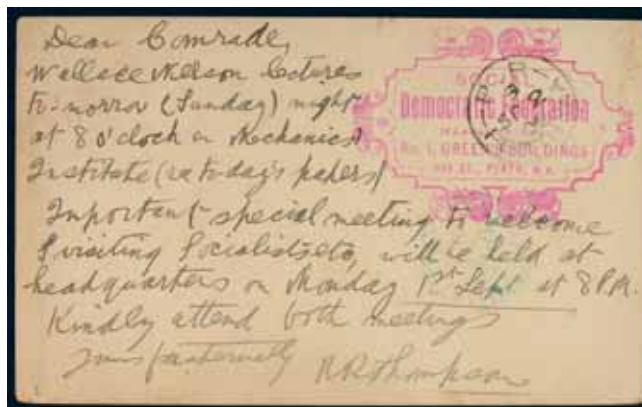 Dear Comrade,
Wallace Nelson lectures
to-morrow (Sunday) night
at 8 o'clock in Mechanics
Institute (see to-day's papers)
Important special meeting to welcome
visiting Socialists etc, will be held at
headquarters on Monday 1st Sept at 8 P.M.
Kindly attend both meetings
Yours fraternally
SOCIAL
Democratic Federation
No. 1, GREEN'S BUILDINGS
HAY ST., PERTH, W.A.